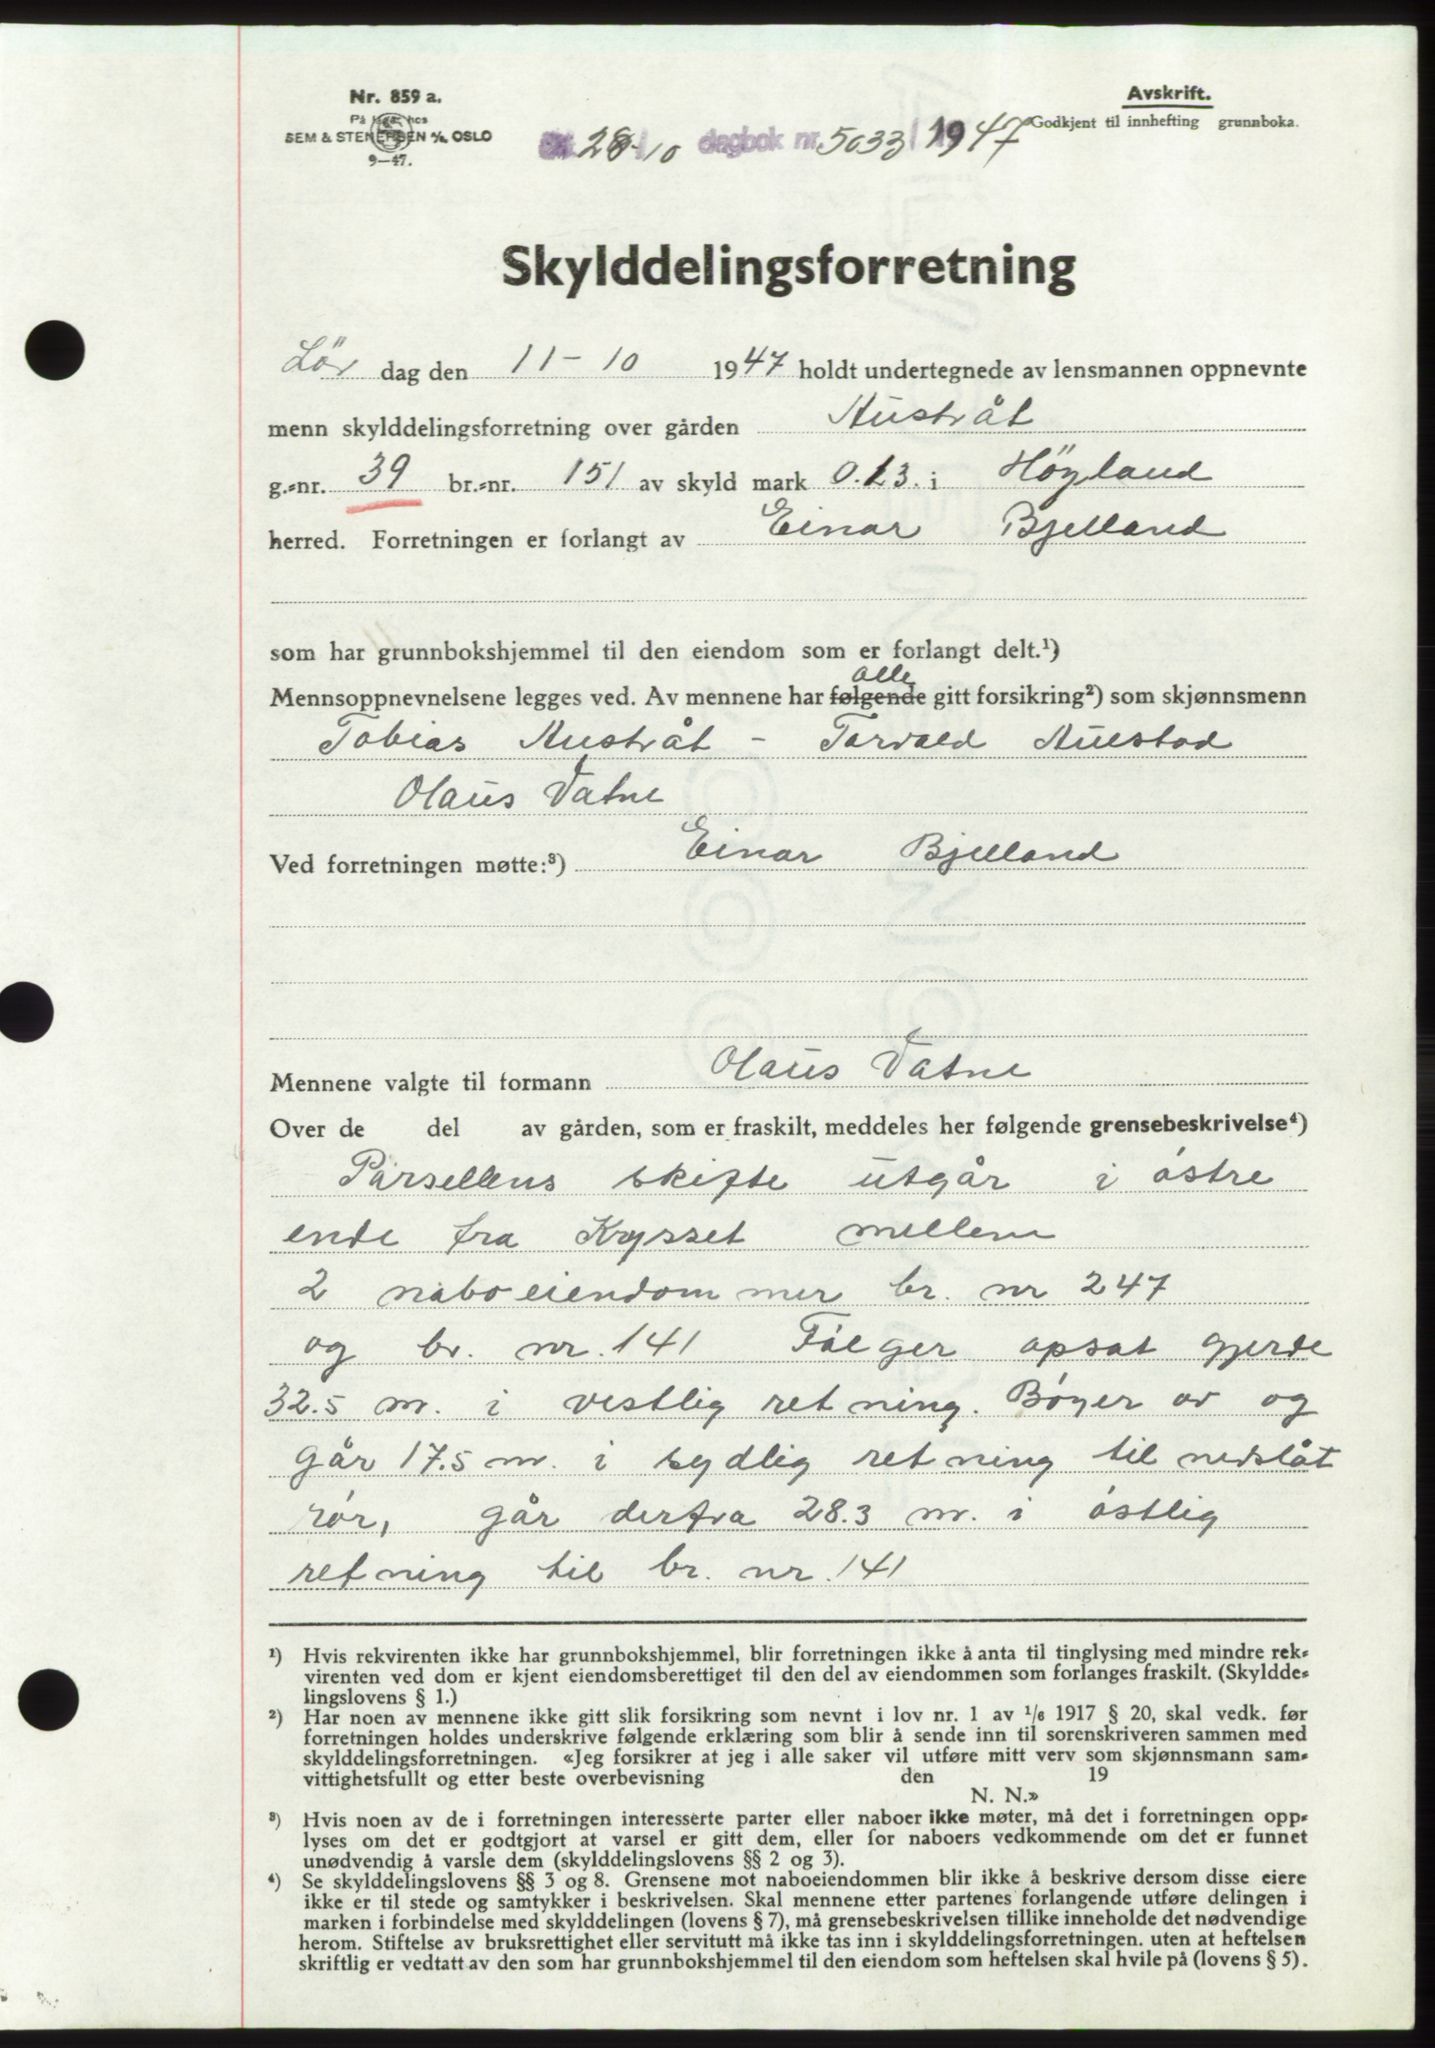 Nr. 859 a.
På lager hos
SEM & STENERSEN A/S OSLO
9—47.
Avskrift.
Godkjent til innhefting grunnboka.
28-10 dagbok nr. 5033 1947
Skylddelingsforretning
Lör dag den 11-10 1947 holdt undertegnede av lensmannen oppnevnte
menn skylddelingsforretning over gården Austråt
g.-nr. 39 br.-nr. 151 av skyld mark 0.13. i Höyland
herred. Forretningen er forlangt av Einar Bjelland
som har grunnbokshjemmel til den eiendom som er forlangt delt.¹)
alle
Mennsoppnevnelsene legges ved. Av mennene har følgende gitt forsikring²) som skjønnsmenn
Tobias Austråt - Torvald Austad
Olaus Vatne
Ved forretningen møtte:³) Einar Bjelland
Mennene valgte til formann Olaus Vatne
Over de del av gården, som er fraskilt, meddeles her følgende grensebeskrivelse⁴)
Parsellens skifte utgår i östre
ende fra Krysset mellem
2 naboeiendommer br. nr 247
og br. nr. 141 Fölger opsat gjerde
32.5 m. i vestlig retning. Böyer av og
går 17.5 m. i sydlig retning til nedslåt
rör, går derfra 28.3 m. i östlig
retning til br. nr. 141
¹) Hvis rekvirenten ikke har grunnbokshjemmel, blir forretningen ikke å anta til tinglysing med mindre rek-
virenten ved dom er kjent eiendomsberettiget til den del av eiendommen som forlanges fraskilt. (Skyldde-
lingslovens § 1.)
²) Har noen av mennene ikke gitt slik forsikring som nevnt i lov nr. 1 av 1/6 1917 § 20, skal vedk. før
forretningen holdes underskrive følgende erklæring som blir å sende inn til sorenskriveren sammen med
skylddelingsforretningen. «Jeg forsikrer at jeg i alle saker vil utføre mitt verv som skjønnsmann sam-
vittighetsfullt og etter beste overbevisning den 19
N. N.»
³) Hvis noen av de i forretningen interesserte parter eller naboer ikke møter, må det i forretningen opp-
lyses om det er godtgjort at varsel er gitt dem, eller for naboers vedkommende om det er funnet
unødvendig å varsle dem (skylddelingslovens §§ 2 og 3).
⁴) Se skylddelingslovens §§ 3 og 8. Grensene mot naboeiendommen blir ikke å beskrive dersom disse eiere
ikke er til stede og samtykker i beskrivelsen. Skal mennene etter partenes forlangende utføre delingen i
marken i forbindelse med skylddelingen (lovens § 7), må grensebeskrivelsen tillike inneholde det nødvendige
herom. Stiftelse av bruksrettighet eller servitutt må ikke tas inn i skylddelingsforretningen. uten at heftelsen
skriftlig er vedtatt av den som har grunnbokshjemmel til den eiendom som heftelsen skal hvile på (lovens § 5).